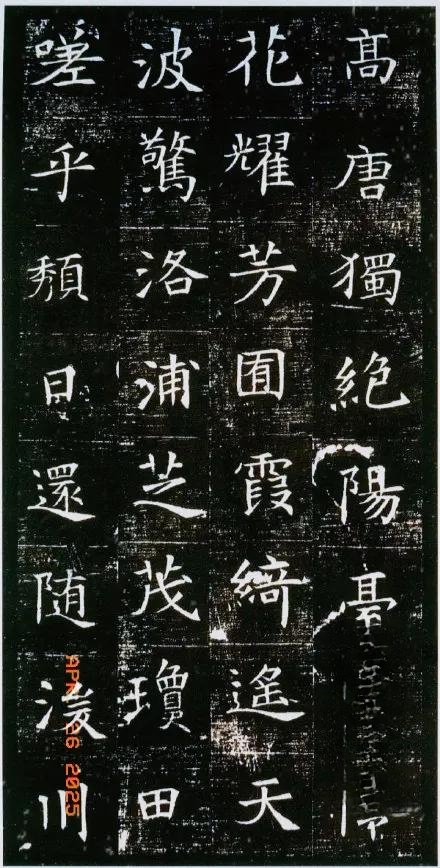 高唐獨絶陽臺
花耀芳囿霞綺遙天
波驚洛浦芝茂瓊田
嗟乎頹日還随湲川
APR 26 2025